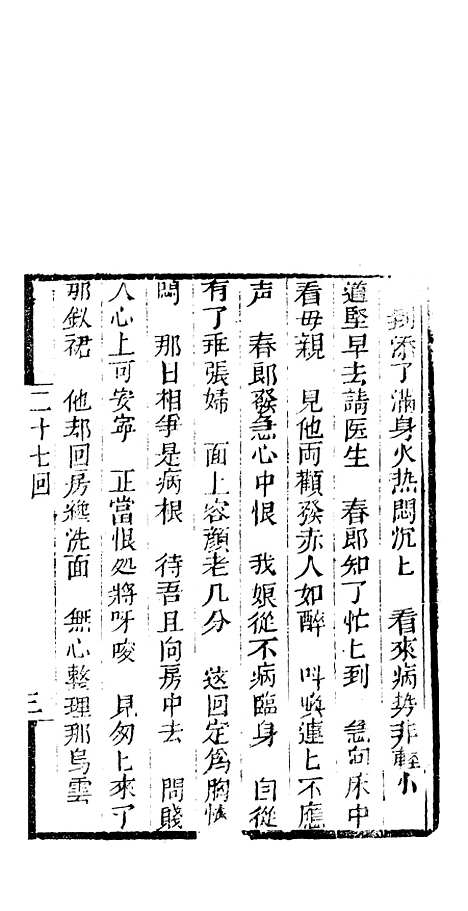 添了滿身火热悶沉上　看來病势非輕小
道堅早去請医生　春郎知了忙上到　急向床中
看毋親　見他両顴發赤人如醉　呌喚連上不應
声　春郎發急心中恨　我娘從不病臨身　自從
有了張婦　面上容顔老几分　这回定爲胸懐
悶　那日相爭是病根　待吾且向房中去　問賤
人心上可安寧　正當恨処將牙咬　見匆上來了
那釵裙　他却回房纔洗面　無心整理那烏雲
二十七回
三